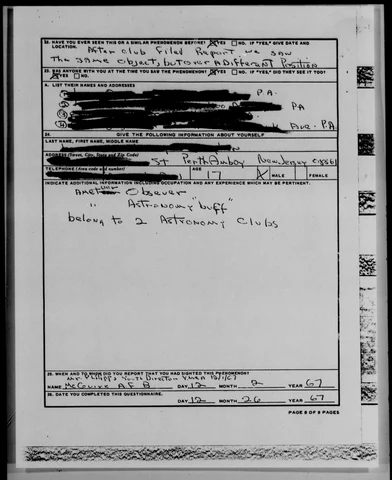 22. HAVE YOU EVER SEEN THIS OR A SIMILAR PHENOMENON BEFORE? YES NO. IF "YES," GIVE DATE AND LOCATION.
After Club Filed Report we saw
The same object, but over A Different Position
23. WAS ANYONE WITH YOU AT THE TIME YOU SAW THE PHENOMENON? YES NO. IF "YES," DID THEY SEE IT TOO? YES NO.
A. LIST THEIR NAMES AND ADDRESSES
P.A.
PA
Ave. P.A
24. GIVE THE FOLLOWING INFORMATION ABOUT YOURSELF
LAST NAME, FIRST NAME, MIDDLE NAME
ADDRESS (Street, City, State and Zip Code)
St Perth Amboy New Jersey 08861
TELEPHONE (Area code and number) AGE 17 MALE FEMALE
INDICATE ADDITIONAL INFORMATION INCLUDING OCCUPATION AND ANY EXPERIENCE WHICH MAY BE PERTINENT.
Observer
" Astronomy "buff"
belong to 2 Astronomy Clubs
25. WHEN AND TO WHOM DID YOU REPORT THAT YOU HAD SIGHTED THIS PHENOMENON?
Mr Phillips Youth Director YMCA
NAME McGuire A.F.B DAY 12 MONTH 2 YEAR 67
26. DATE YOU COMPLETED THIS QUESTIONNAIRE. DAY 12 MONTH 26 YEAR 67
PAGE 8 OF 9 PAGES